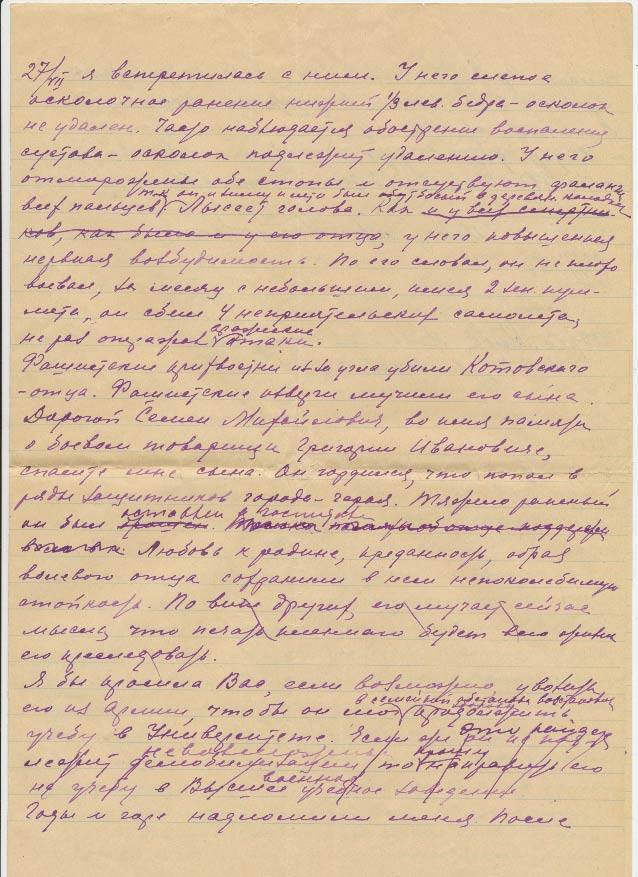 27/VII я встретилась с ним. У него слепое
осколочное ранение нижней 1/3 лев. бедра - осколок
не удален. Часто наблюдается обострение воспаления
сустава - осколок подлежит удалению. У него
отморожены обе стопы и отсутствуют фаланги
т.к. он и зиму и лето был
всех пальцев. Лысеет голова. Как и у всех
ков, как было и у его отца, у него повышенная
нервная возбудимость. По его словам, он не плохо
воевал, за месяц с небольшим, имея 2 зен. пуле-
мета, он сбил 4 неприятельских самолета,
не раз отражал вражеские атаки.
Фашистские приквостни из-за угла убили Котовского
- отца. Фашистские изверги мучили его сына.
Дорогой Семен Михайлович, во имя памяти
о боевом товарище Григории Ивановиче,
спасите мне сына. Он гордился, что попал в
ряды защитников города-героя. Тяжело раненый
он был оставлен в госпитале
Любовь к родине, преданность, образ
волевого отца сохранили в нем непоколебимую
стойкость. По вине других, его мучает сейчас
мысль, что печать пленного будет всю жизнь
его преследовать.
Я бы просила Вас, если возможно, уволить
его из армии, чтобы он мог в семейной обстановке
продолжить
учебу в Университете. Если
невозможно, прошу направить его
на учебу в Высшее военное учебное заведение.
Годы и горе надломили меня. После